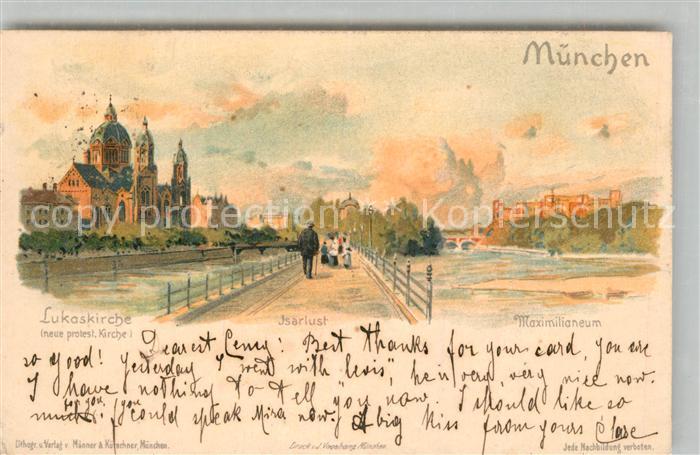 München
copyright protection & Kopierschutz copyright protection & Kopierschutz
Lukaskirche
(neue protest. Kirche)
Isarlust
Maximilianeum
Dearest Cenzy! Best thanks for your card, you are
so good! yesterday I went with "Lewis", he is very, very nice now.
I have nothing to tell you now. I should like so
much, if you could speak Mira now. A big kiss from yours
Lithogr. u. Verlag v. Männer & Kürschner, München.
Druck v. J. München.
Jede Nachbildung verboten.